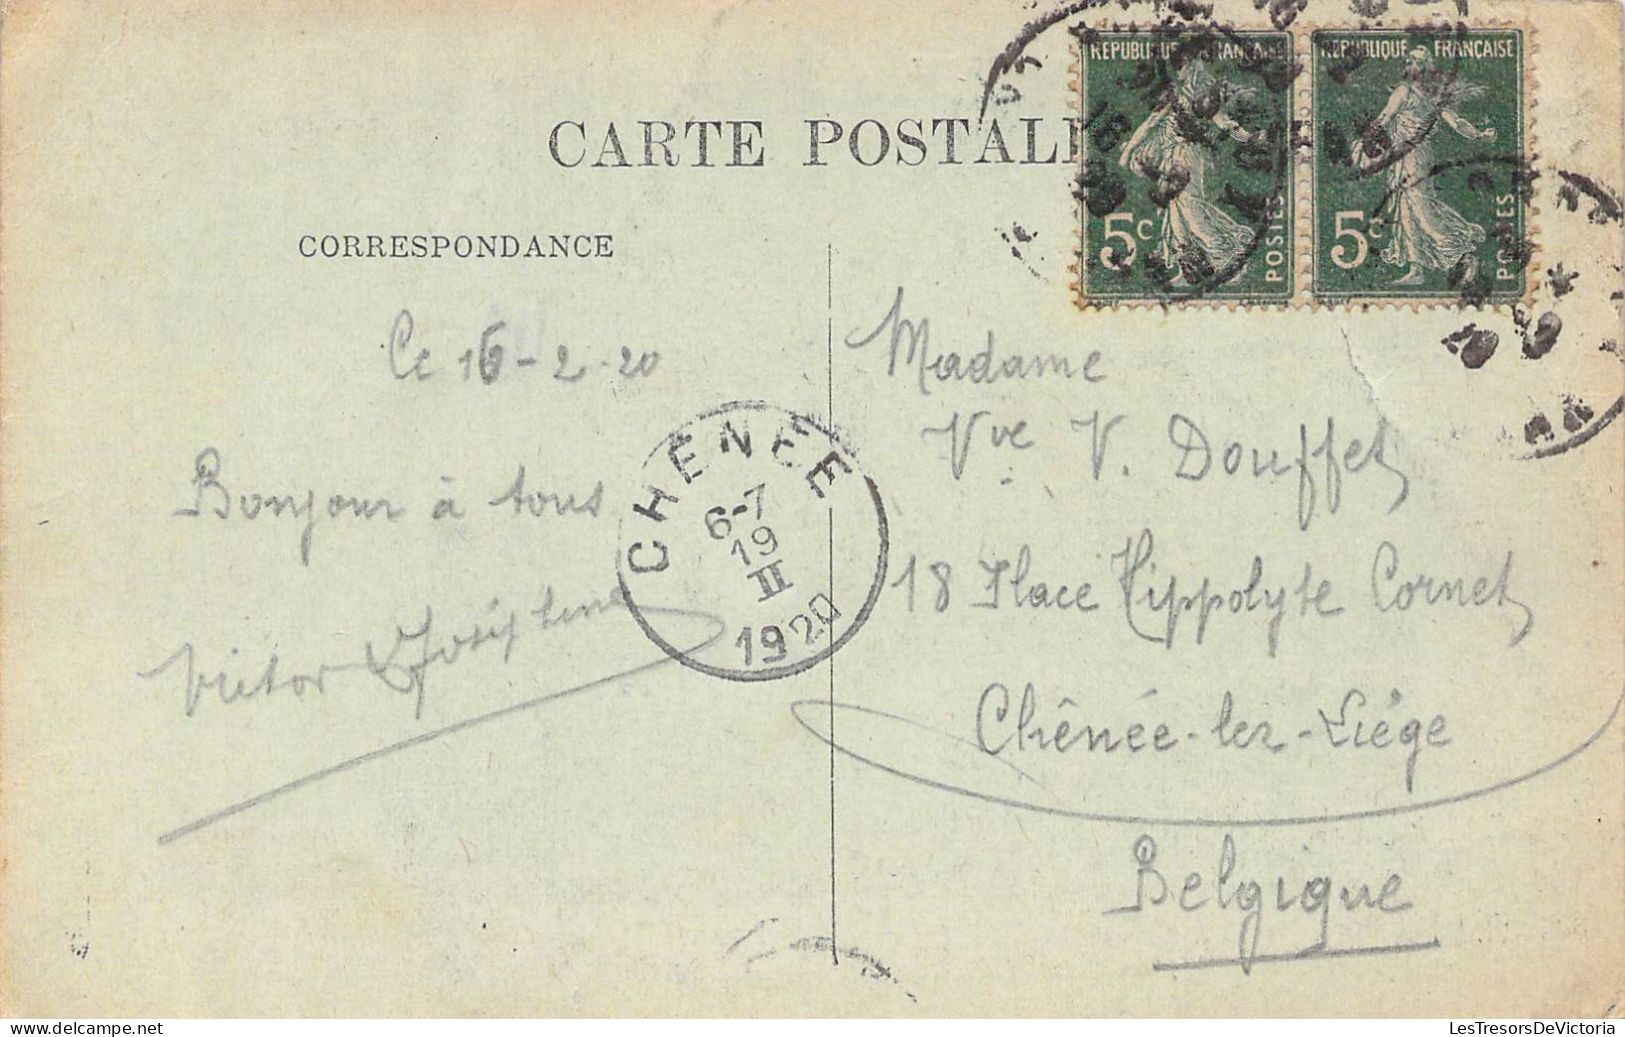 CARTE POSTALE
RÉPUBLIQUE FRANÇAISE
5c
POSTES
RÉPUBLIQUE FRANÇAISE
5c
POSTES
CORRESPONDANCE
Ce 16-2-20
Bonjour à tous
Victor & Joséphine
CHÊNÉE
6-7
19
II
1920
Madame
Vve V. Douffet
18 Place Hippolyte Cornet
Chênée-lez-Liège
Belgique
LesTresorsDeVictoria